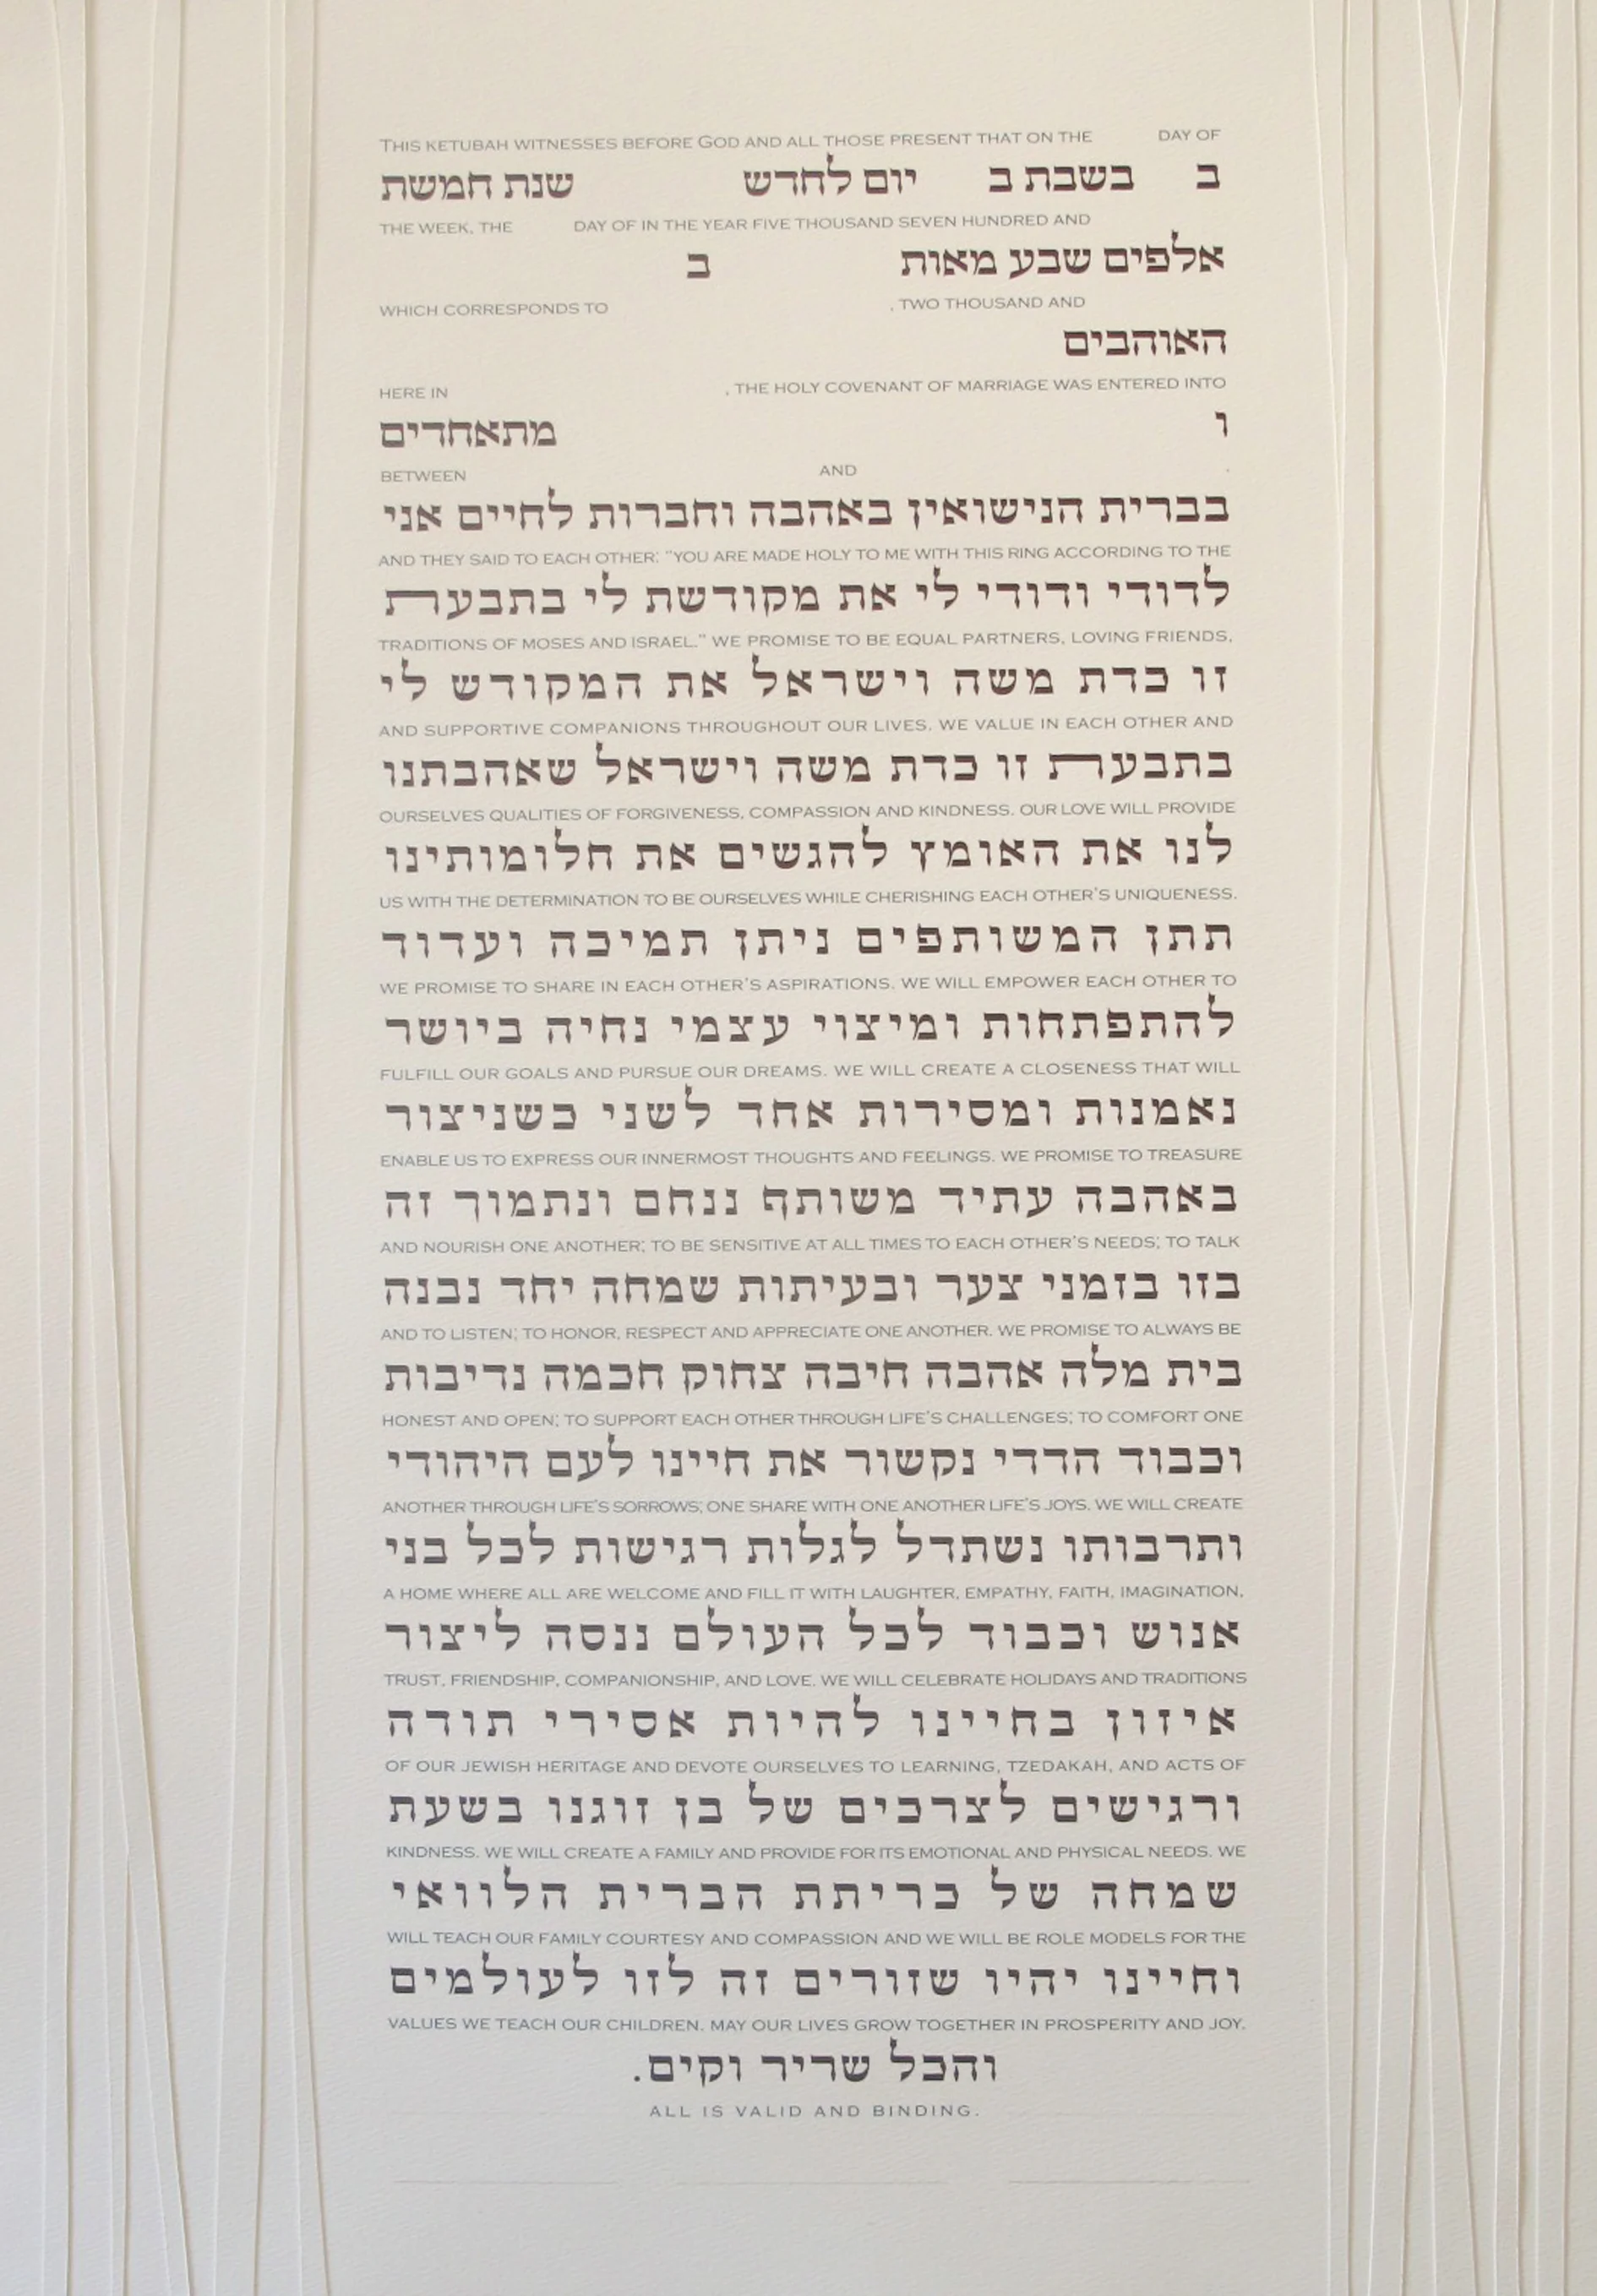 THIS KETUBAH WITNESSES BEFORE GOD AND ALL THOSE PRESENT THAT ON THE DAY OF
ב בשבת ב יום לחדש שנת חמשת
THE WEEK, THE DAY OF IN THE YEAR FIVE THOUSAND SEVEN HUNDRED AND
אלפים שבע מאות ב
WHICH CORRESPONDS TO , TWO THOUSAND AND
האוהבים
HERE IN , THE HOLY COVENANT OF MARRIAGE WAS ENTERED INTO
ו מתאחדים
BETWEEN AND .
בברית הנישואין באהבה וחברות לחיים אני
AND THEY SAID TO EACH OTHER: "YOU ARE MADE HOLY TO ME WITH THIS RING ACCORDING TO THE
לדודי ודודי לי את מקודשת לי בתבעת
TRADITIONS OF MOSES AND ISRAEL." WE PROMISE TO BE EQUAL PARTNERS, LOVING FRIENDS,
זו כדת משה וישראל את המקודש לי
AND SUPPORTIVE COMPANIONS THROUGHOUT OUR LIVES. WE VALUE IN EACH OTHER AND
בתבעת זו כדת משה וישראל שאהבתנו
OURSELVES QUALITIES OF FORGIVENESS, COMPASSION AND KINDNESS. OUR LOVE WILL PROVIDE
לנו את האומץ להגשים את חלומותינו
US WITH THE DETERMINATION TO BE OURSELVES WHILE CHERISHING EACH OTHER'S UNIQUENESS.
תתן המשותפים ניתן תמיכה ועדוד
WE PROMISE TO SHARE IN EACH OTHER'S ASPIRATIONS. WE WILL EMPOWER EACH OTHER TO
להתפתחות ומיצוי עצמי נחיה ביושר
FULFILL OUR GOALS AND PURSUE OUR DREAMS. WE WILL CREATE A CLOSENESS THAT WILL
נאמנות ומסירות אחד לשני כשניצור
ENABLE US TO EXPRESS OUR INNERMOST THOUGHTS AND FEELINGS. WE PROMISE TO TREASURE
באהבה עתיד משותף ננחם ונתמוך זה
AND NOURISH ONE ANOTHER; TO BE SENSITIVE AT ALL TIMES TO EACH OTHER'S NEEDS; TO TALK
בזו בזמני צער ובעיתות שמחה יחד נבנה
AND TO LISTEN; TO HONOR, RESPECT AND APPRECIATE ONE ANOTHER. WE PROMISE TO ALWAYS BE
בית מלה אהבה חיבה צחוק חכמה נדיבות
HONEST AND OPEN; TO SUPPORT EACH OTHER THROUGH LIFE'S CHALLENGES; TO COMFORT ONE
וכבוד הדדי נקשור את חיינו לעם היהודי
ANOTHER THROUGH LIFE'S SORROWS; ONE SHARE WITH ONE ANOTHER LIFE'S JOYS. WE WILL CREATE
ותרבותו נשתדל לגלות רגישות לכל בני
A HOME WHERE ALL ARE WELCOME AND FILL IT WITH LAUGHTER, EMPATHY, FAITH, IMAGINATION,
אנוש וכבוד לכל העולם ננסה ליצור
TRUST, FRIENDSHIP, COMPANIONSHIP, AND LOVE. WE WILL CELEBRATE HOLIDAYS AND TRADITIONS
איזון בחיינו להיות אסירי תודה
OF OUR JEWISH HERITAGE AND DEVOTE OURSELVES TO LEARNING, TZEDAKAH, AND ACTS OF
ורגישים לצרכים של בן זוגנו בשעת
KINDNESS. WE WILL CREATE A FAMILY AND PROVIDE FOR ITS EMOTIONAL AND PHYSICAL NEEDS. WE
שמחה של כריתת הברית הלוואי
WILL TEACH OUR FAMILY COURTESY AND COMPASSION AND WE WILL BE ROLE MODELS FOR THE
וחיינו יהיו שזורים זה לזו לעולמים
VALUES WE TEACH OUR CHILDREN. MAY OUR LIVES GROW TOGETHER IN PROSPERITY AND JOY.
והכל שריר וקים.
ALL IS VALID AND BINDING.